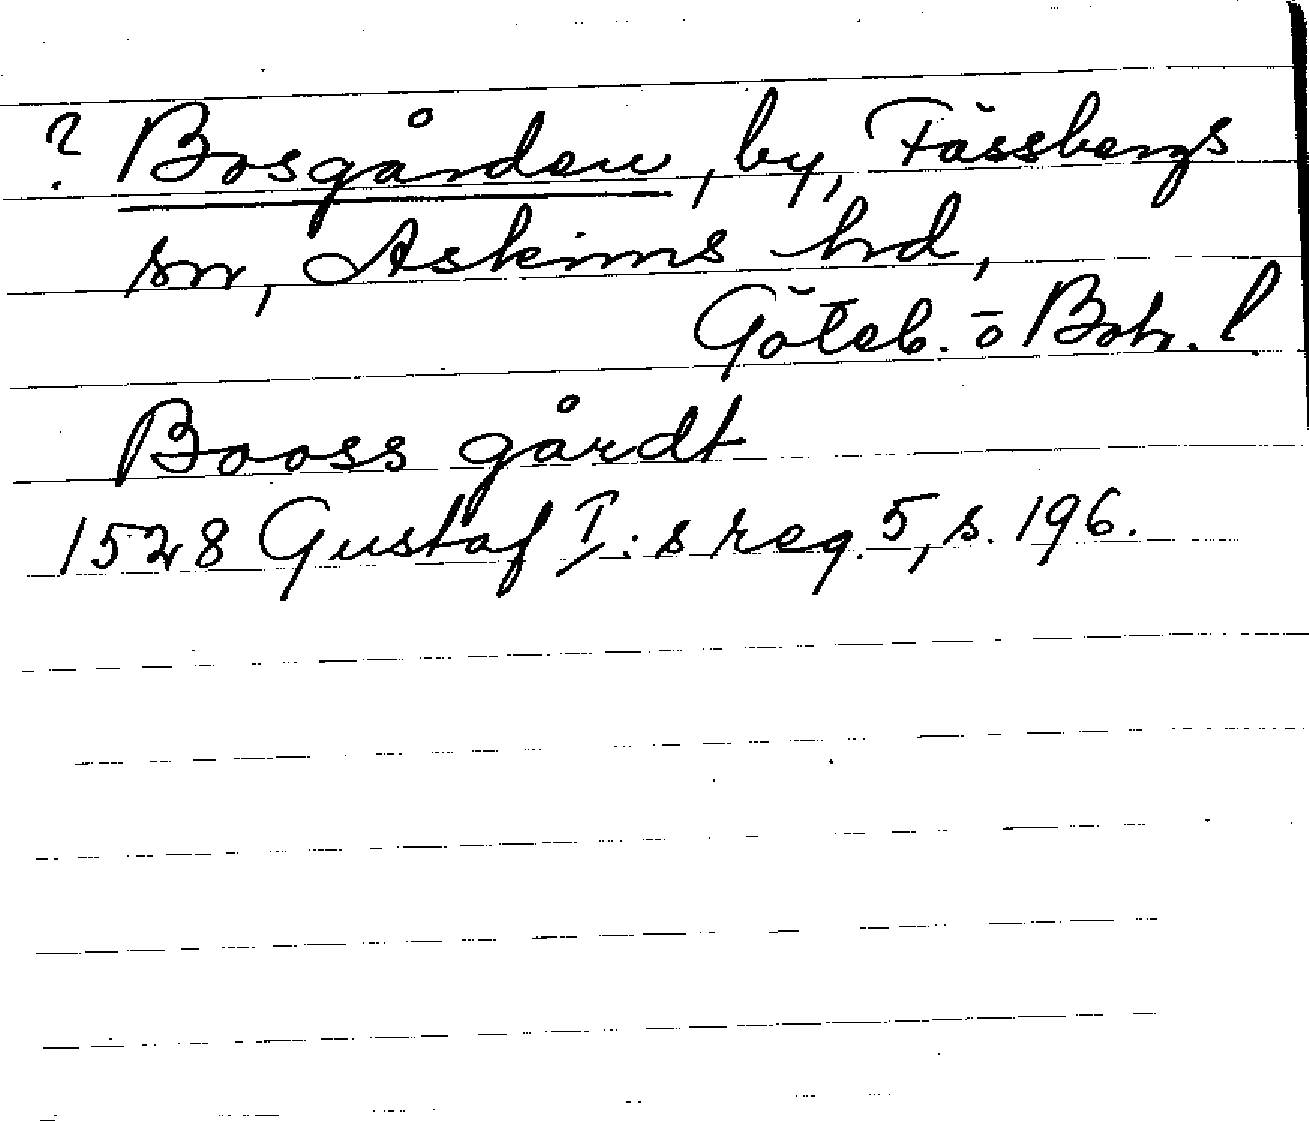 ? Bosgården, by, Fässbergs
sn, Askims hd,
Göteb. o Boh. l
Booss gårdt
1528 Gustaf I:s reg. 5, s. 196.